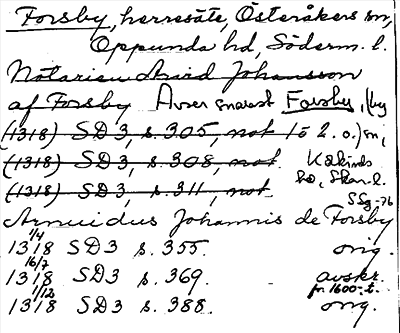 Forsby, herresäte, Österåkers sn,
Oppunda hd, Söderm. l.
Notarien Arvid Johansson
af Forsby Avser snarast Forsby, (by
(1318) SD 3, s. 305, not 1 o 2. o.) sn,
(1318) SD 3, s. 308, not. Kåkinds
(1318) SD 3, s. 311, not. hd, Skar. l.
SSg-76
Arnuidus Johannis de Forsby
1318 1/4 SD3 s. 355. orig.
1318 16/7 SD3 s. 369. avskr. fr. 1600-t.
1318 1/12 SD3 s. 388. orig.